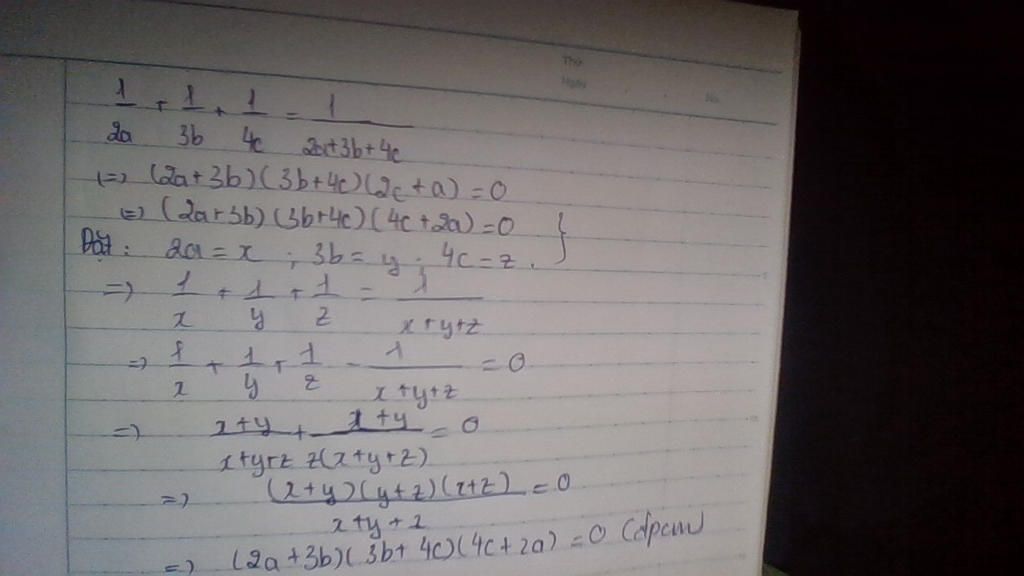 Thứ
Ngày
No.
1/2a + 1/3b + 1/4c = 1/(2a+3b+4c)
(=) (2a+3b)(3b+4c)(2c+a) = 0
(=) (2a+3b)(3b+4c)(4c+2a) = 0 }
Đặt: 2a = x ; 3b = y ; 4c = z.
=) 1/x + 1/y + 1/z = 1/(x+y+z)
=) 1/x + 1/y + 1/z - 1/(x+y+z) = 0
=) (x+y)/(x+y+z) + (x+y)/(z(x+y+z)) = 0
=) (x+y)(y+z)(x+z)/(x+y+z) = 0
=) (2a+3b)(3b+4c)(4c+2a) = 0 (đpcm)